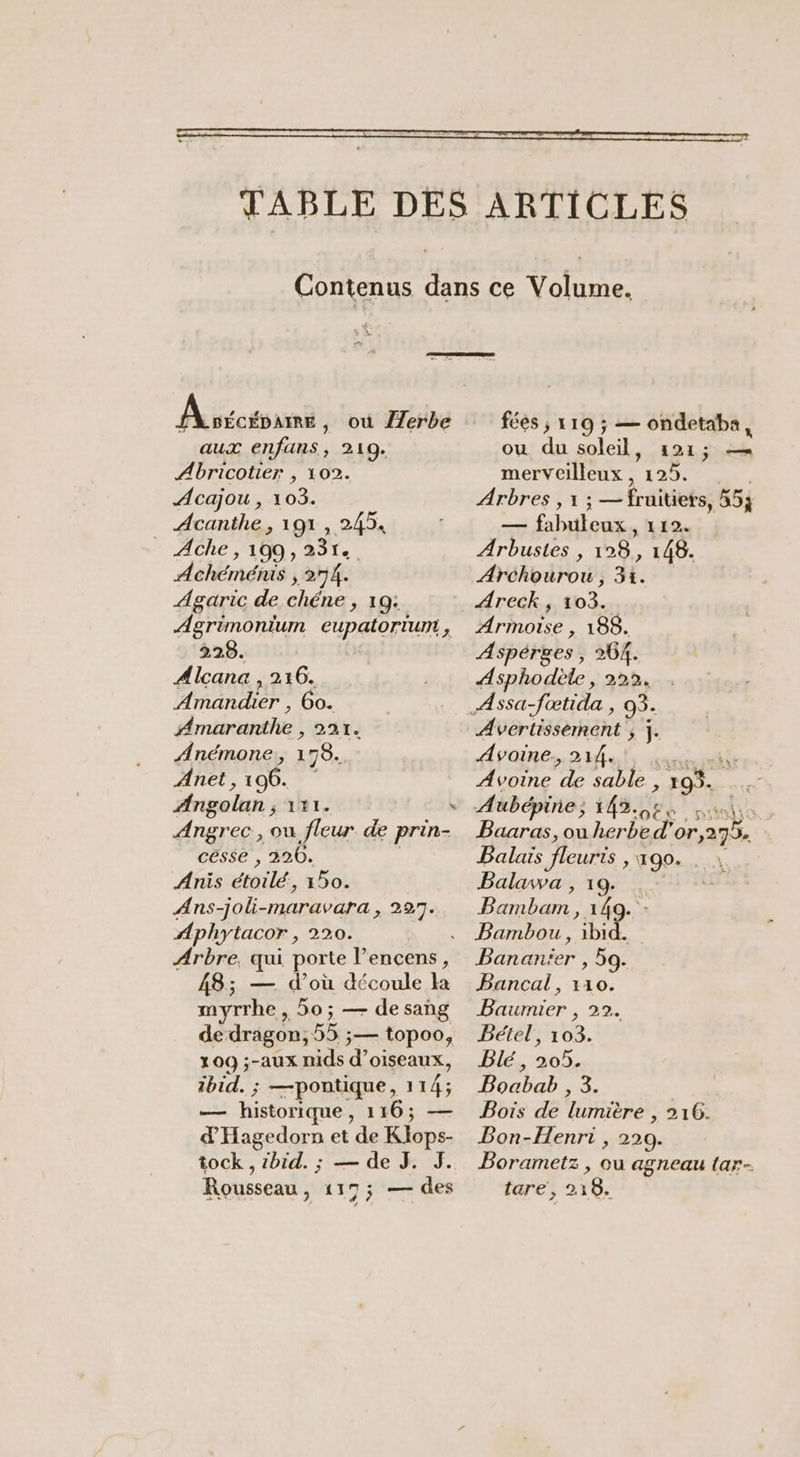 TABLE DES ARTICLES
Contenus dans ce Volume.
ABÉCÉDAIRE, ou Herbe
aux enfans, 219.
Abricotier, 102.
Acajou, 103.
Acanthe, 191, 245.
Ache, 199, 231.
Achéménis, 274.
Agaric de chéne, 19.
Agrimonium eupatorium,
228.
Alcana, 216.
Amandier, 60.
Amaranthe, 221.
Anémone, 178.
Anet, 196.
Angolan, 111.
Angrec, ou fleur de prin-
cesse, 226.
Anis étoilé, 150.
Ans-joli-maravara, 227.
Aphytacor, 220.
Arbre qui porte l'encens,
48; — d'où découle la
myrrhe, 50; — de sang
de dragon, 55; — topoo,
109; -aux nids d'oiseaux,
ibid.; —pontique, 114;
— historique, 116; —
d'Hagedorn et de Klops-
tock, ibid.; — de J. J.
Rousseau, 117; — des
fées, 119; — ondetaba,
ou du soleil, 121; —
merveilleux, 125.
Arbres, 1; — fruitiers, 55;
— fabuleux, 112.
Arbustes, 128, 148.
Archourou, 31.
Areck, 103.
Armoise, 188.
Asperges, 264.
Asphodèle, 222.
Assa-fœtida, 93.
Avertissement, j.
Avoine, 214.
Avoine de sable, 193.
Aubépine, 142.
Baaras, ou herbe d'or, 275.
Balais fleuris, 190.
Balawa, 19.
Bambam, 149.
Bambou, ibid.
Bananier, 59.
Bancal, 110.
Baumier, 22.
Bétel, 103.
Blé, 205.
Boabab, 3.
Bois de lumière, 216.
Bon-Henri, 229.
Borametz, ou agneau tar-
tare, 218.